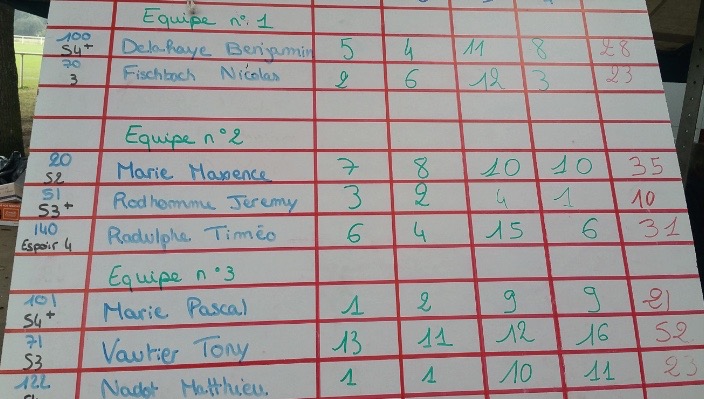 Equipe n°. 1
100 S4+ Delahaye Benjamin 5 4 11 8 28
70 3 Fischbach Nicolas 2 6 12 3 23
Equipe n°2
20 S2 Marie Maxence 7 8 10 10 35
51 S3+ Rodhomme Jeremy 3 2 4 1 10
140 Espoir 4 Radulphe Timéo 6 4 15 6 31
Equipe n°3
101 S4+ Marie Pascal 1 2 9 9 21
71 S3 Vautier Tony 13 11 12 16 52
122 Nadot Matthieu. 1 1 10 11 23